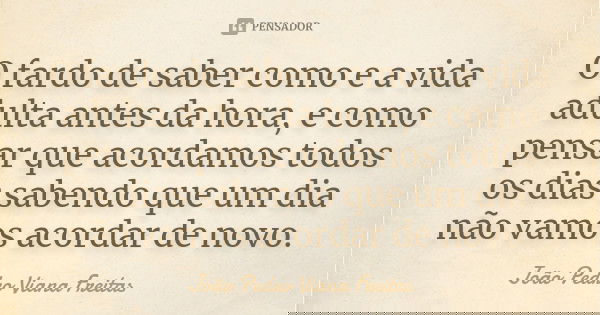 PENSADOR
O fardo de saber como e a vida
adulta antes da hora, e como
pensar que acordamos todos
os dias sabendo que um dia
não vamos acordar de novo.
João Pedro Viana Freitas